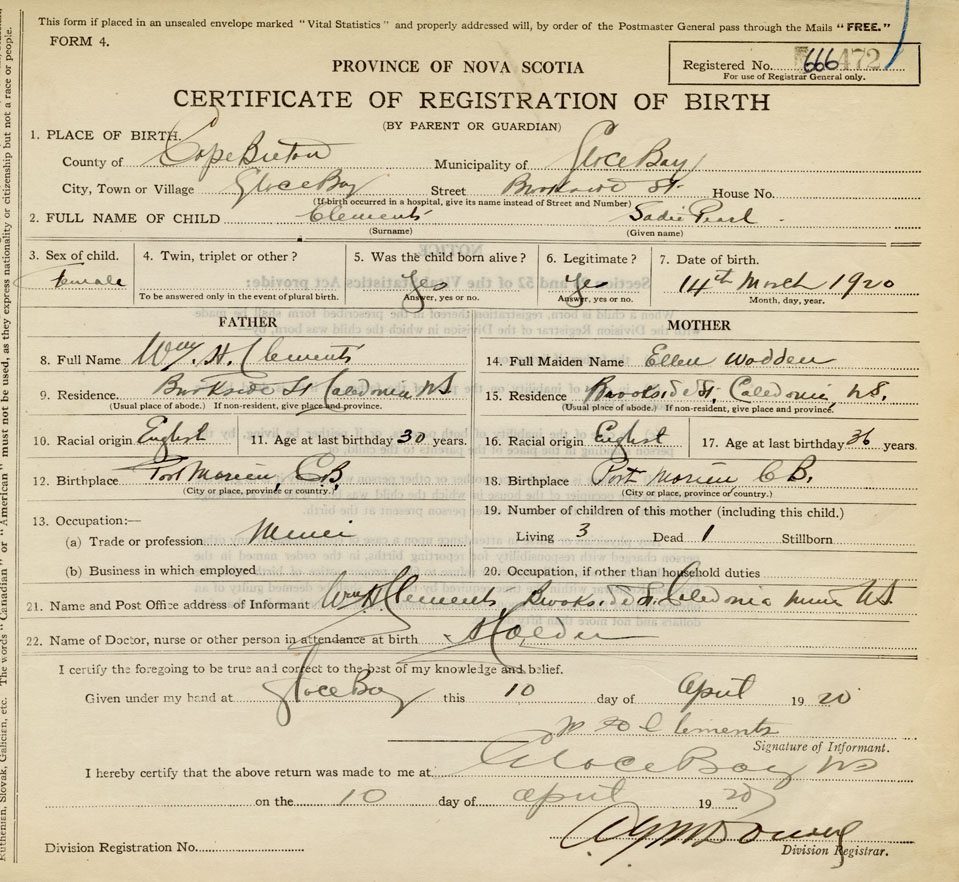 This form if placed in an unsealed envelope marked "Vital Statistics" and properly addressed will, by order of the Postmaster General pass through the Mails "FREE."
FORM 4.
Registered No. 666 472
For use of Registrar General only.
PROVINCE OF NOVA SCOTIA
CERTIFICATE OF REGISTRATION OF BIRTH
(BY PARENT OR GUARDIAN)
1. PLACE OF BIRTH.
County of Cape Breton Municipality of Glace Bay
City, Town or Village Glace Bay Street Brookside St. House No.
(If birth occurred in a hospital, give its name instead of Street and Number)
2. FULL NAME OF CHILD Clements Sadie Pearl
(Surname) (Given name)
3. Sex of child. 4. Twin, triplet or other? 5. Was the child born alive? 6. Legitimate? 7. Date of birth.
Female Yes Yes 14th March 1920
To be answered only in the event of plural birth. Answer, yes or no. Answer, yes or no. Month, day, year.
FATHER MOTHER
8. Full Name Wm. H. Clements 14. Full Maiden Name Ellen Wadden
9. Residence. Brookside St Caledonia NS 15. Residence Brookside St. Caledonia, N.S.
(Usual place of abode.) If non-resident, give place and province. (Usual place of abode.) If non-resident, give place and province.
10. Racial origin English 11. Age at last birthday 30 years. 16. Racial origin English 17. Age at last birthday 36 years.
12. Birthplace Port Morien, C.B. 18. Birthplace Port Morien C.B.
(City or place, province or country.) (City or place, province or country.)
13. Occupation:— 19. Number of children of this mother (including this child.)
(a) Trade or profession Miner Living 3 Dead 1 Stillborn
(b) Business in which employed 20. Occupation, if other than household duties
21. Name and Post Office address of Informant Wm H Clements, Brookside St. Caledonia Mines NS
22. Name of Doctor, nurse or other person in attendance at birth
I certify the foregoing to be true and correct to the best of my knowledge and belief.
Given under my hand at Glace Bay this 10 day of April 1920
Clements
Signature of Informant.
I hereby certify that the above return was made to me at Glace Bay NS
on the 10 day of April 1920
Division Registration No. Division Registrar.
Ruthenian, Slovak, Galician, etc. The words "Canadian" or "American" must not be used, as they express nationality or citizenship but not a race or people.